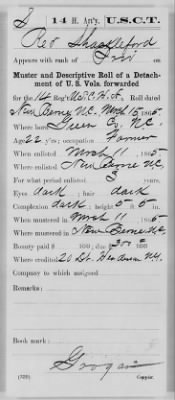 S 14 H. Art'y. U.S.C.T.
Shackleford
Appears with rank of Priv on
Muster and Descriptive Roll of a Detach-
ment of U. S. Vols. forwarded
for the 14 Reg't U.S.C.H.A. Roll dated
New Berne N.C. Mch 15 1865.
Where born Green Co, N.C.
Age 22 y'rs; occupation Farmer
When enlisted March 11, 1865.
Where enlisted New Berne N.C.
For what period enlisted 3 years.
Eyes dark; hair dark
Complexion dark; height 5 ft. 5 in.
When mustered in March 11, 1865.
Where mustered in New Berne N.C.
Bounty paid $ 100; due $ 300 100
Where credited 20 Dt. N.Y.
Company to which assigned
Remarks:
Book mark:
Grogan
Copyist.